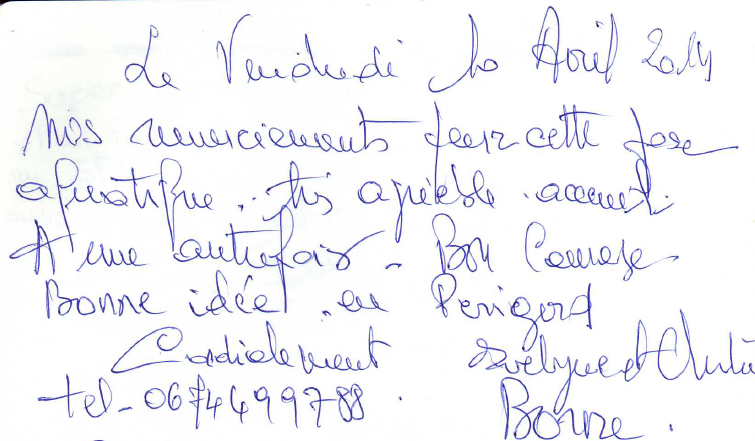 Le Vendredi 10 Avril 2014
Nos remerciements pour cette
aquatique.. très agréable. accueil.
A une autrefois - Bon Courage
Bonne idée. en Perigord
Cordialement Evelyne et
tel - 0674499788.
Bonne.